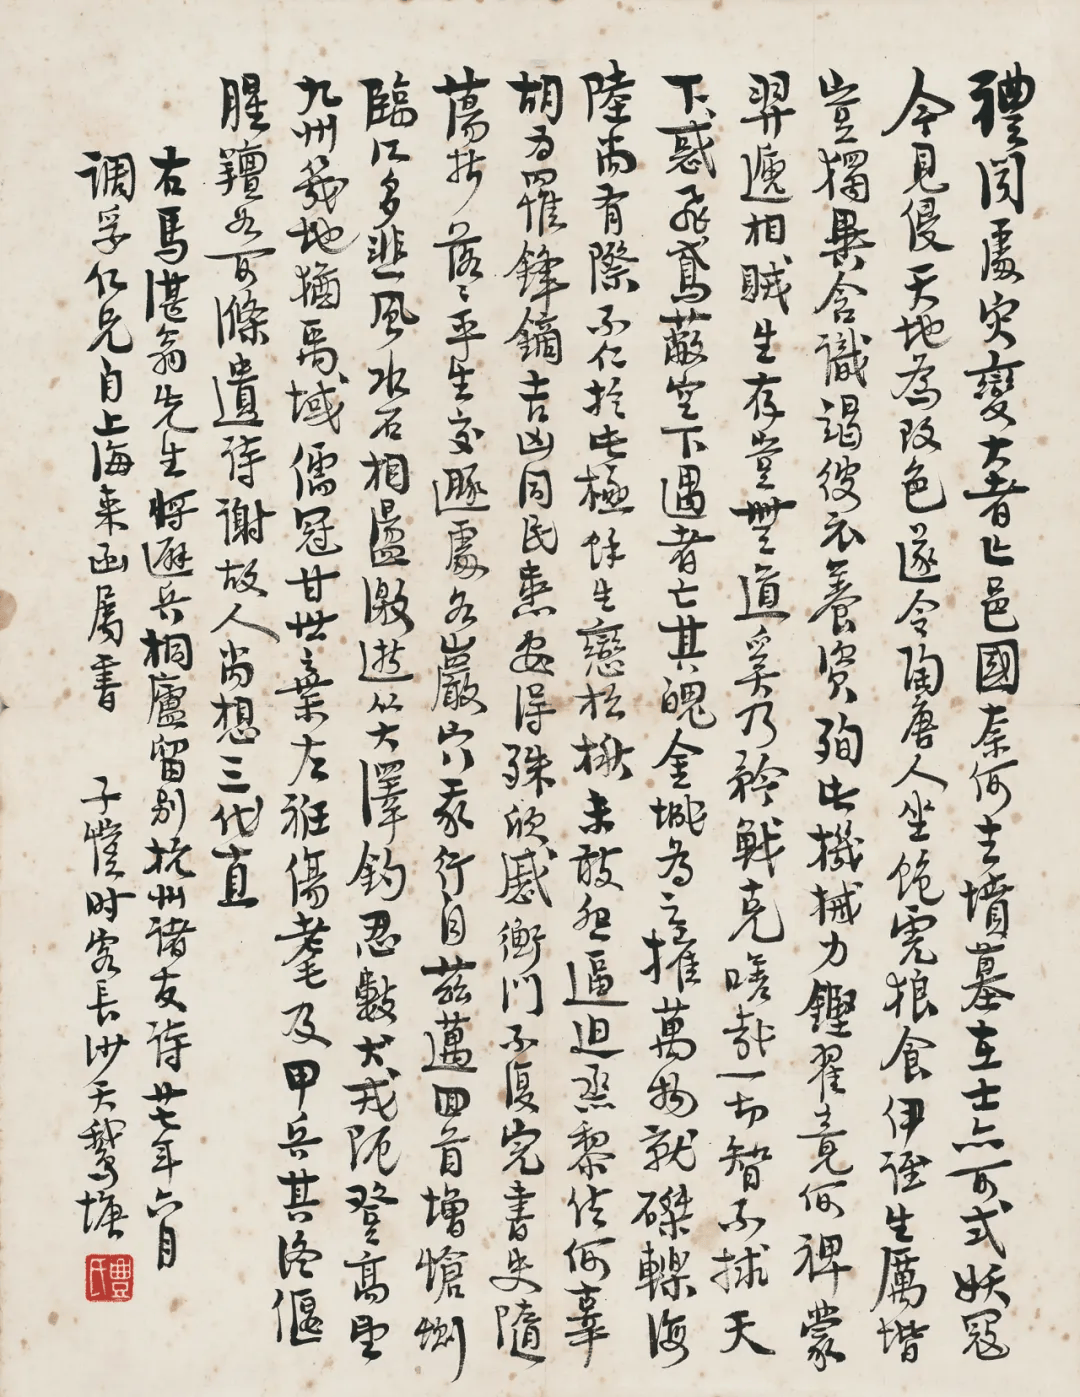 禮聞處灾變大者亡邑國奈何去墳墓在士亦可式妖寇
今見侵天地為改色遂令陶唐人坐飽虎狼食伊誰生厲堦
豈獨異含識竭彼衣養資殉此機械力鏗翟竟何裨蒙
羿遞相賊生存豈無道奚乃矜戰克嗟哉一切智不救天
下惑飛鳶蔽空下遇者亡其魄金城為之摧萬物就磔轢海
陸尚有際不仁於此極餘生戀松楸未敢怨逼迫烝黎信何辜
胡為罹鋒鏑吉凶同民患安得殊欣慼衡門不復完書史隨
蕩析落落平生交遯處各巖穴我行自茲邁回首增愴惻
臨江多悲風水石相盪激逝從大澤釣忍數犬戎阨登高望
九州幾地猶禹域儒冠甘世棄左衽傷耄及甲兵其終偃
腥羶如可滌遺詩謝故人尚想三代直
右馬湛翁先生將避兵桐廬留別杭州諸友詩廿七年六月
調孚仁兄自上海來函屬書 子愷時客長沙天鵝塘
豐氏